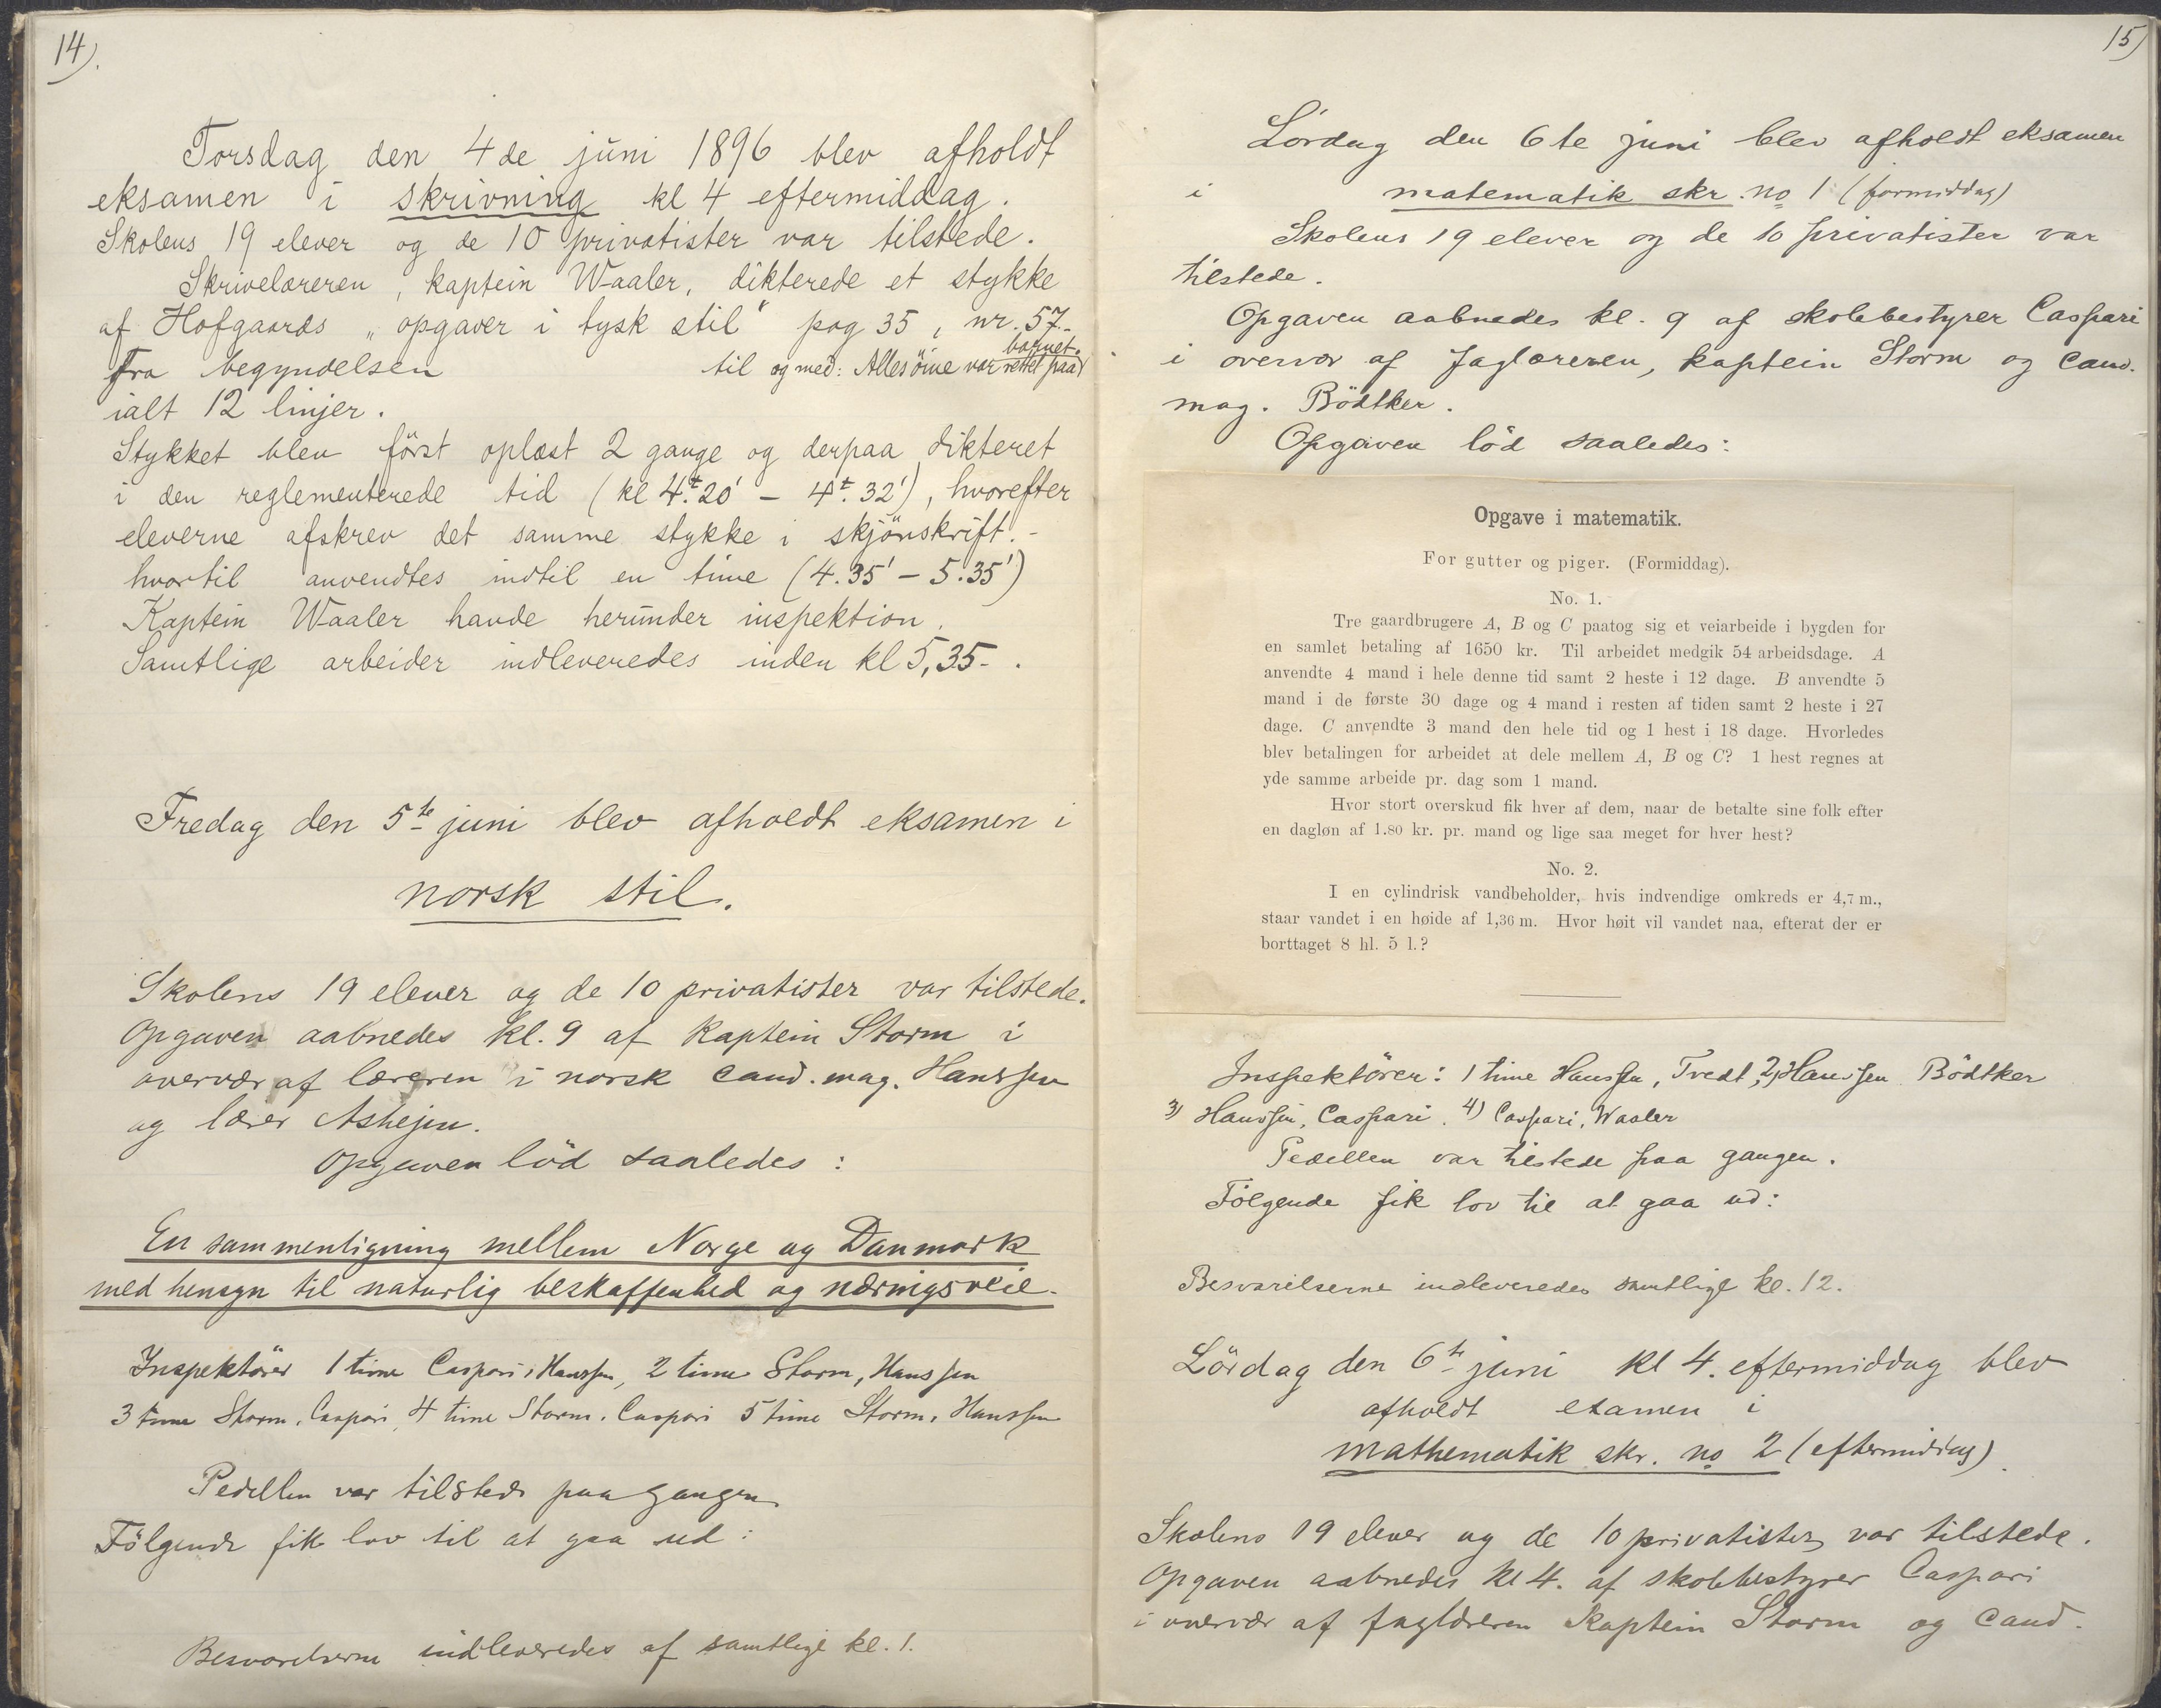 14).
Torsdag den 4de juni 1896 blev afholdt
eksamen i skrivning kl 4 eftermiddag.
Skolens 19 elever og de 10 privatister var tilstede.
Skrivelæreren, kaptein Waaler, dikterede et stykke
af Hofgaards „opgaver i tysk stil“ pag 35, nr. 57.-
fra begyndelsen til og med: Alles öine var rettet paa barnet.
ialt 12 linjer.
Stykket blev först oplæst 2 gange og derpaa dikteret
i den reglementerede tid (kl 4t.20' - 4t.32'), hvorefter
eleverne afskrev det samme stykke i skjönskrift.-
hvortil anvendtes indtil en time (4.35' - 5.35')
Kaptein Waaler havde herunder inspektion.
Samtlige arbeider indleveredes inden kl 5,35-.
Fredag den 5te juni blev afholdt eksamen i
norsk stil.
Skolens 19 elever og de 10 privatister var tilstede.
Opgaven aabnedes kl. 9 af kaptein Storm i
overvær af læreren i norsk cand. mag. Hanssen
og lærer Askejen.
Opgaven löd saaledes:
En sammenligning mellem Norge og Danmark
med hensyn til naturlig beskaffenhed og næringsveie.
Inspektörer 1 time Caspari, Hanssen, 2 time Storm, Hanssen
3 time Storm, Caspari, 4 time Storm, Caspari 5 time Storm, Hanssen
Pedellen var tilstede paa gangen.
Fölgende fik lov til at gaa ud:
Besvarelserne indleveredes af samtlige kl. 1.
15)
Lördag den 6te juni blev afholdt eksamen
i matematik skr. no 1 (formiddag)
Skolens 19 elever og de 10 privatister var
tilstede.
Opgaven aabnedes kl. 9 af skolebestyrer Caspari
i overvær af faglæreren, kaptein Storm og cand.
mag. Bödtker.
Opgaven löd saaledes:
Opgave i matematik.
For gutter og piger. (Formiddag).
No. 1.
Tre gaardbrugere A, B og C paatog sig et veiarbeide i bygden for
en samlet betaling af 1650 kr. Til arbeidet medgik 54 arbeidsdage. A
anvendte 4 mand i hele denne tid samt 2 heste i 12 dage. B anvendte 5
mand i de første 30 dage og 4 mand i resten af tiden samt 2 heste i 27
dage. C anvendte 3 mand den hele tid og 1 hest i 18 dage. Hvorledes
blev betalingen for arbeidet at dele mellem A, B og C? 1 hest regnes at
yde samme arbeide pr. dag som 1 mand.
Hvor stort overskud fik hver af dem, naar de betalte sine folk efter
en dagløn af 1.80 kr. pr. mand og lige saa meget for hver hest?
No. 2.
I en cylindrisk vandbeholder, hvis indvendige omkreds er 4,7 m.,
staar vandet i en høide af 1,36 m. Hvor høit vil vandet naa, efterat der er
borttaget 8 hl. 5 l.?
Inspektörer: 1 time Hanssen, Tvedt, 2) Hanssen Bödtker
3) Hanssen, Caspari. 4) Caspari, Waaler
Pedellen var tilstede paa gangen.
Fölgende fik lov til at gaa ud:
Besvarelserne indleveredes samtlige kl. 12.
Lördag den 6te juni kl 4. eftermiddag blev
afholdt examen i
mathematik skr. no 2 (eftermiddag)
Skolens 19 elever og de 10 privatister var tilstede.
Opgaven aabnedes kl 4. af skolebestyrer Caspari
i overvær af faglæreren Kaptein Storm og cand.